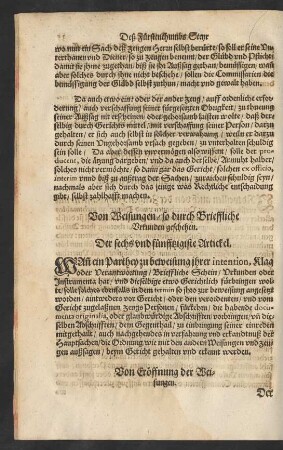 Deß Fürstenthumbs Steyr
wo nun ein Sach deß zeugen Herrn selbst berürte/ so soll er seine Un-
terthanen und Diener/ so zu zeugen benennt/ der Glübd und Pflicht/
damit sie ihme zugethan/ biß sie jhr Aussag gethan/ bemüssigen/ wañ
aber solches durch ihne nicht beschehe/ sollen die Commissarien die
bemüssigung der Glübd selbst zuthun/ macht und gewalt haben.
Da auch etwo ein/ oder der ander zeug/ auff ordenliche erfor-
derung/ auch verschaffung seiner fürgesetzten Obrigkeit/ zu thueung
seiner Aussag nit erscheinen/ oder gehorsamb laisten wolte/ daß der-
selbig durch Gerichts mitl/ mit verschaffung seiner Person/ darzu
gehalten/ er sich auch selbst in solcher verwahrung/ weiln er darzu
durch seinen Ungehorsamb ursach gegeben/ zu underhalten schuldig
sein solle. Da aber dessen unvermögen allerseitsen/ solle der produ-
cent, die äzung dargeben/ und da auch derselbe/ Armuht halber/
solches nicht vermöchte/ so dann gar das Gericht/ solches ex officio,
interim und biß zu außtrag der Sachen/ zuraichen schuldig seyn/
nachmals aber sich durch das jenige was Rechtliche entschaidung
gibt/ selbst zahlhafft machen.
Von Weisungen/ so durch Brieffliche
Urkunden geschehen.
Der sechs und fünfftzigiste Artickel.
WAñ ein Parthey zu beweisung jhrer intention, Klag
oder Verantwortung/ Brieffliche Schein/ Urkunden oder
Instrumenta hat/ und dieselbige etwo Gerichtlich fürbringen wol-
te/ solle solches ebenfalls in dem termin so jhro zur beweisung angesetzt
worden/ aintweders vor Gericht/ oder den verordneten/ und vom
Gericht zugelassnen zeugs Personen/ fürkehrn/ die habende docu-
menta originalia, oder glaubwürdige Abschrifften vorbringen/ uñ die-
selben Abschrifften/ dem Gegenthail/ zu einbringung seiner einreden
mitgethailt/ auch nachgehendts in verfassung und erkandtnuß der
Hauptsachen/ die Ordnung wie mit den andern Weisungen und zeu-
gen aussagen/ beym Gericht gehalten und erkennt werden.
Von Eröffnung der Wei-
sungen.
Der